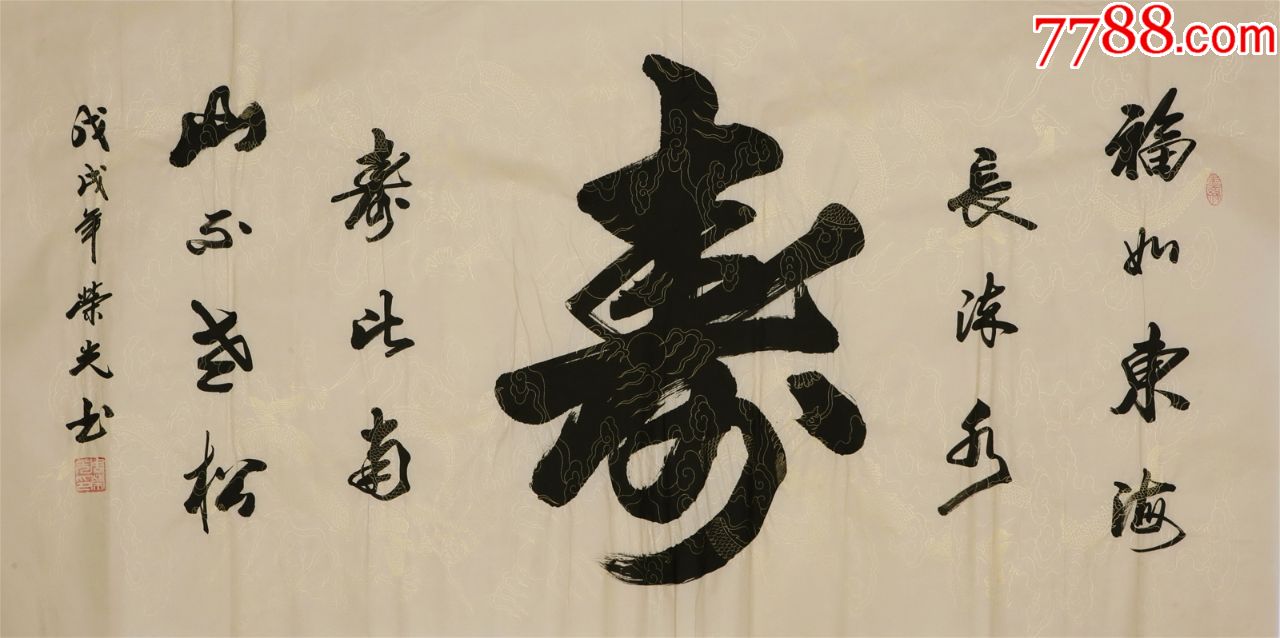 7788.com
福如東海
長流水
寿
寿比南
山不老松
戊戌年榮光书